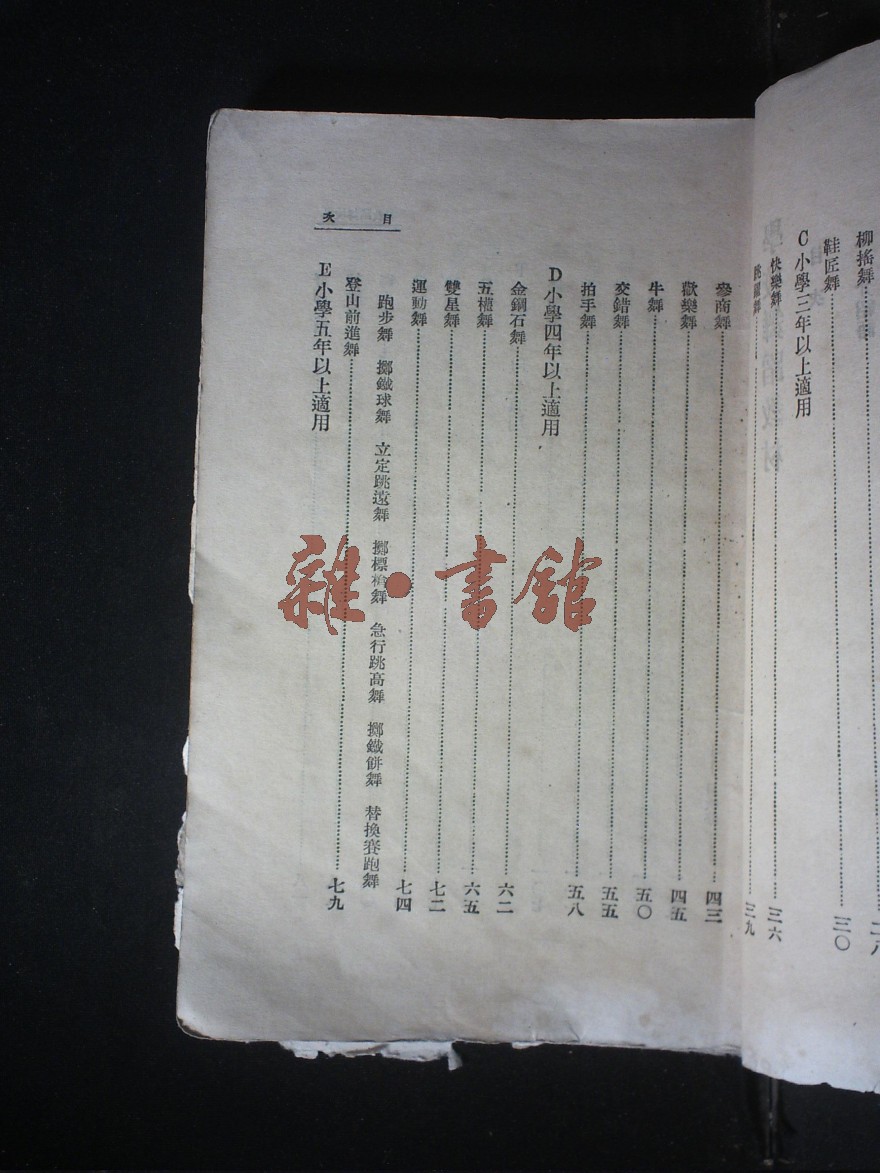 柳搖舞……二八
鞋匠舞……三〇
C 小學三年以上適用
快樂舞……三六
三九
目次
參商舞……四三
歡樂舞……四五
牛舞……五〇
交錯舞……五五
拍手舞……五八
D 小學四年以上適用
金鋼石舞……六二
五權舞……六五
雙星舞……七二
運動舞……七四
跑步舞 擲鐵球舞 立定跳遠舞 擲標槍舞 急行跳高舞 擲鐵餅舞 替換賽跑舞
登山前進舞……七九
E 小學五年以上適用
雜·書館